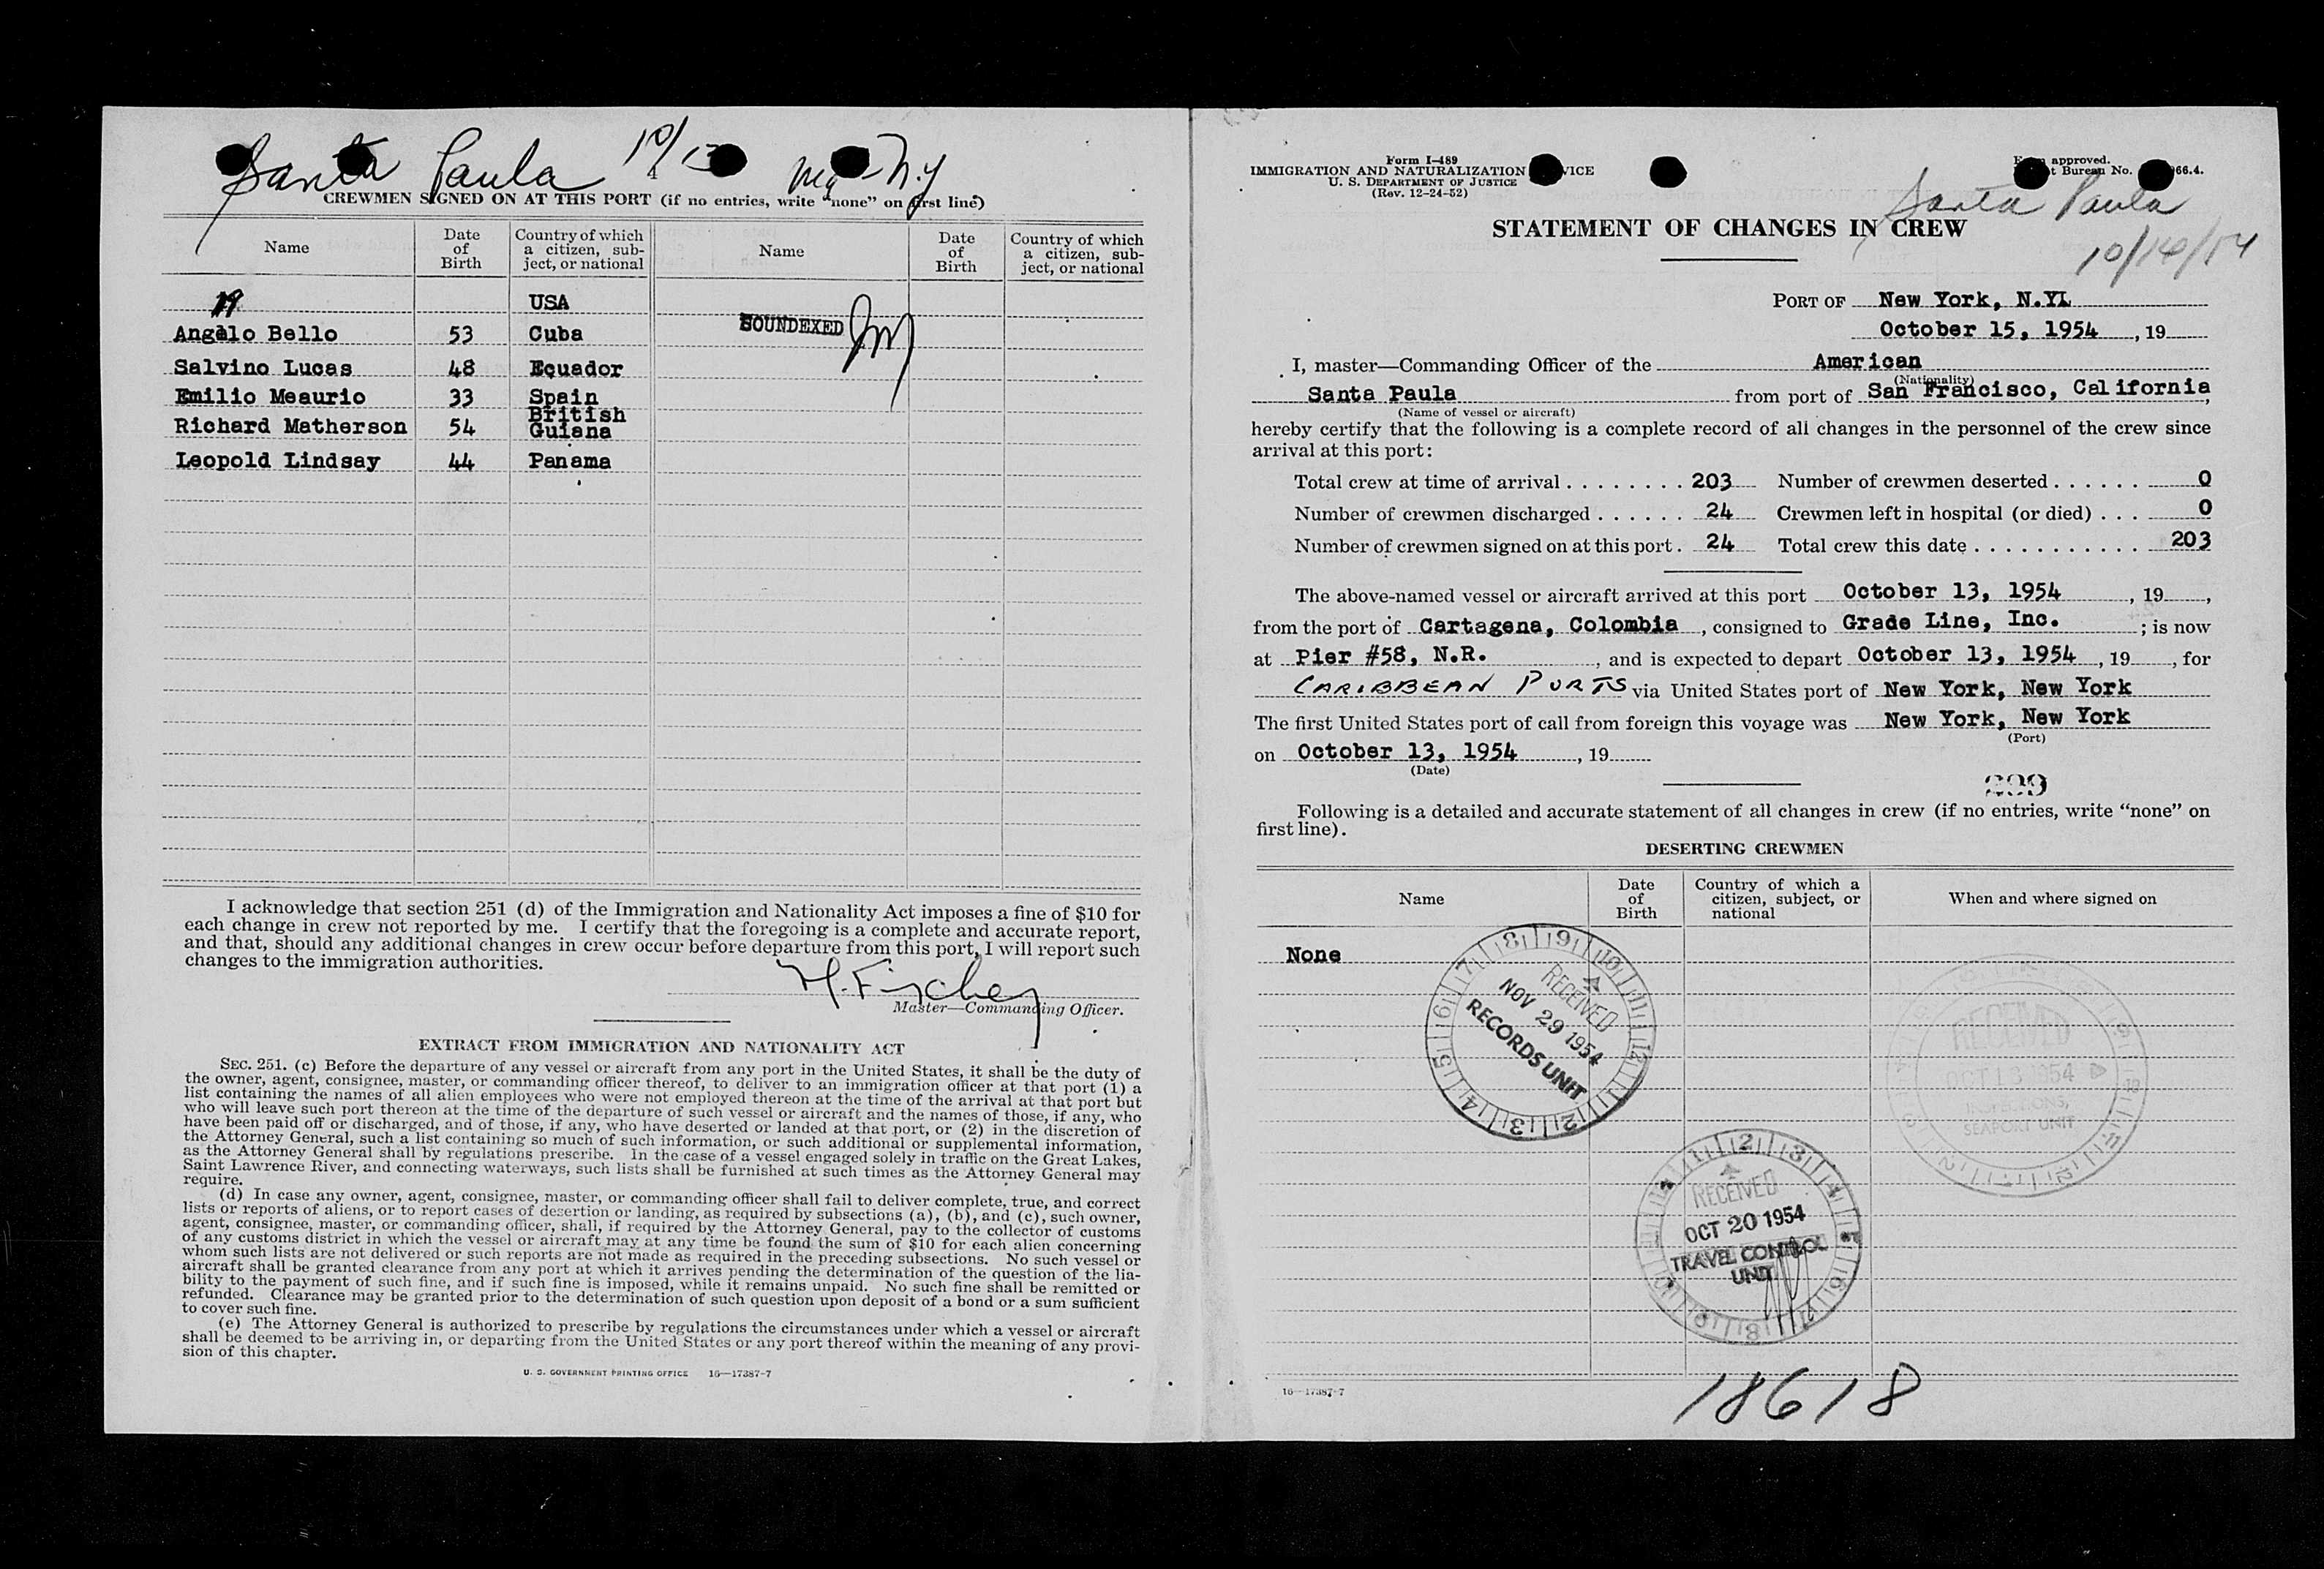 Santa Paula 10/13 N.Y
CREWMEN SIGNED ON AT THIS PORT (if no entries, write "none" on first line)
Name Date of Birth Country of which a citizen, subject, or national Name Date of Birth Country of which a citizen, subject, or national
19 USA
Angelo Bello 53 Cuba
SOUNDEXED
Salvino Lucas 48 Ecuador
Emilio Meaurio 33 Spain
Richard Matherson 54 British Guiana
Leopold Lindsay 44 Panama
I acknowledge that section 251 (d) of the Immigration and Nationality Act imposes a fine of $10 for
each change in crew not reported by me. I certify that the foregoing is a complete and accurate report,
and that, should any additional changes in crew occur before departure from this port, I will report such
changes to the immigration authorities.
H. Fischer
Master—Commanding Officer.
EXTRACT FROM IMMIGRATION AND NATIONALITY ACT
SEC. 251. (c) Before the departure of any vessel or aircraft from any port in the United States, it shall be the duty of
the owner, agent, consignee, master, or commanding officer thereof, to deliver to an immigration officer at that port (1) a
list containing the names of all alien employees who were not employed thereon at the time of the arrival at that port but
who will leave such port thereon at the time of the departure of such vessel or aircraft and the names of those, if any, who
have been paid off or discharged, and of those, if any, who have deserted or landed at that port, or (2) in the discretion of
the Attorney General, such a list containing so much of such information, or such additional or supplemental information,
as the Attorney General shall by regulations prescribe. In the case of a vessel engaged solely in traffic on the Great Lakes,
Saint Lawrence River, and connecting waterways, such lists shall be furnished at such times as the Attorney General may
require.
(d) In case any owner, agent, consignee, master, or commanding officer shall fail to deliver complete, true, and correct
lists or reports of aliens, or to report cases of desertion or landing, as required by subsections (a), (b), and (c), such owner,
agent, consignee, master, or commanding officer, shall, if required by the Attorney General, pay to the collector of customs
of any customs district in which the vessel or aircraft may at any time be found the sum of $10 for each alien concerning
whom such lists are not delivered or such reports are not made as required in the preceding subsections. No such vessel or
aircraft shall be granted clearance from any port at which it arrives pending the determination of the question of the lia-
bility to the payment of such fine, and if such fine is imposed, while it remains unpaid. No such fine shall be remitted or
refunded. Clearance may be granted prior to the determination of such question upon deposit of a bond or a sum sufficient
to cover such fine.
(e) The Attorney General is authorized to prescribe by regulations the circumstances under which a vessel or aircraft
shall be deemed to be arriving in, or departing from the United States or any port thereof within the meaning of any provi-
sion of this chapter.
U. S. GOVERNMENT PRINTING OFFICE 16—17387-7
Form I-489
IMMIGRATION AND NATURALIZATION VICE
U. S. DEPARTMENT OF JUSTICE
(Rev. 12-24-52)
approved.
t Bureau No. 66.4.
Santa Paula
10/14/54
STATEMENT OF CHANGES IN CREW
PORT OF New York, N.YL
October 15, 1954, 19
I, master—Commanding Officer of the American
(Nationality)
Santa Paula from port of San Francisco, California,
(Name of vessel or aircraft)
hereby certify that the following is a complete record of all changes in the personnel of the crew since
arrival at this port:
Total crew at time of arrival . . . . . . . . 203 Number of crewmen deserted . . . . . . 0
Number of crewmen discharged . . . . . . 24 Crewmen left in hospital (or died) . . . 0
Number of crewmen signed on at this port . 24 Total crew this date . . . . . . . . . . . 203
The above-named vessel or aircraft arrived at this port October 13, 1954, 19,
from the port of Cartagena, Colombia, consigned to Grade Line, Inc.; is now
at Pier #58, N.R., and is expected to depart October 13, 1954, 19, for
CARIBBEAN PORTS via United States port of New York, New York
The first United States port of call from foreign this voyage was New York, New York
(Port)
on October 13, 1954, 19
(Date)
299
Following is a detailed and accurate statement of all changes in crew (if no entries, write "none" on
first line).
DESERTING CREWMEN
Name Date of Birth Country of which a citizen, subject, or national When and where signed on
None
RECEIVED
NOV 29 1954
RECORDS UNIT
RECEIVED
OCT 13 1954
INSPECTIONS,
SEAPORT UNIT
RECEIVED
OCT 20 1954
TRAVEL CONTROL
UNIT
16—17387-7
18618